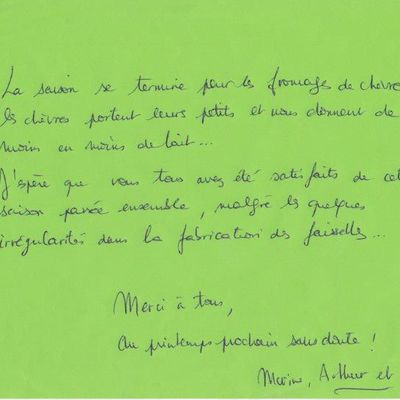 La saison se termine pour les fromages de chèvre
les chèvres portent leurs petits et nous donnent de
moins en moins de lait...
J'espère que vous tous avez été satisfaits de cet
saison passée ensemble, malgré les quelques
irrégularités dans la fabrication des faisselles...
Merci à tous,
Au printemps prochain sans doute !
Marine, Arthur et